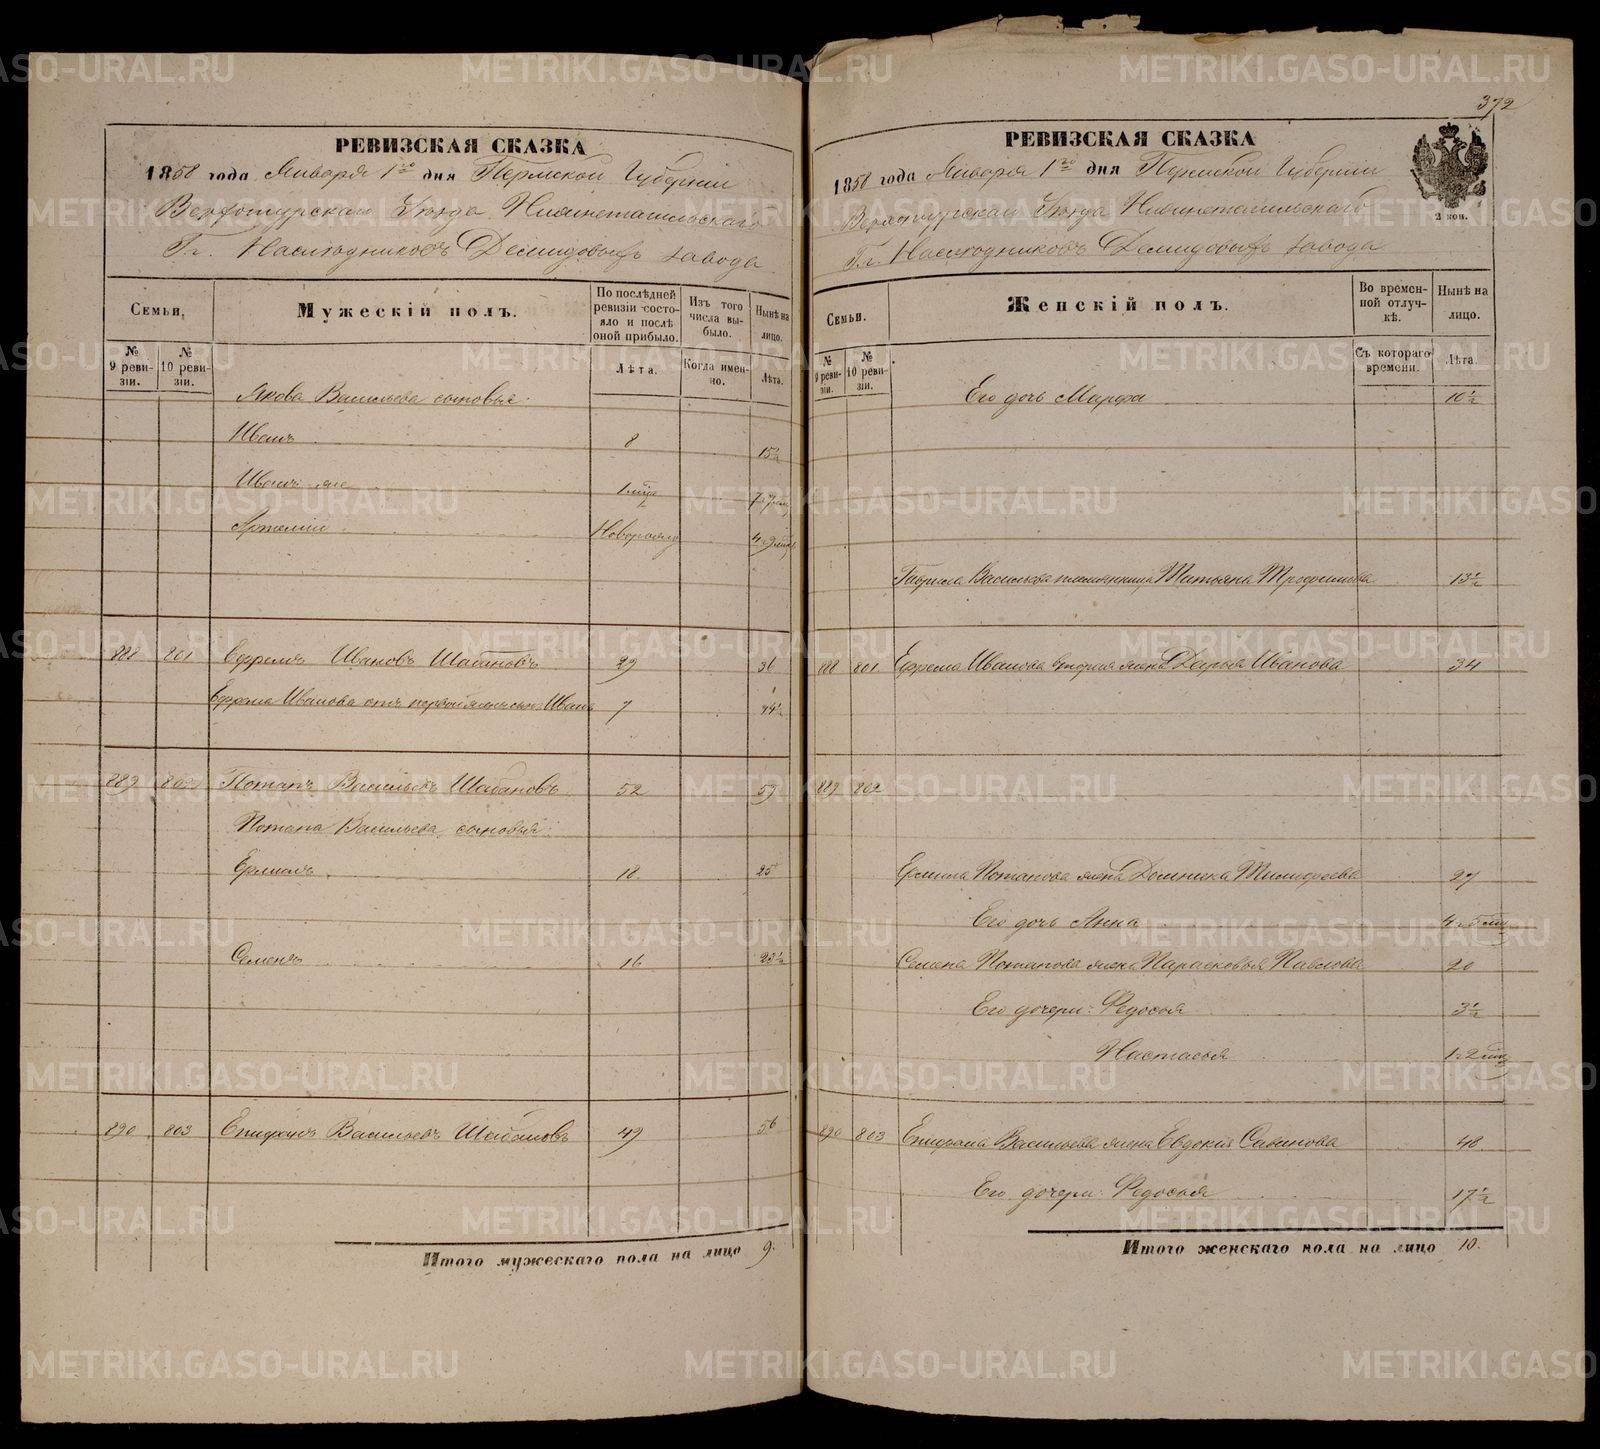 РЕВИЗСКАЯ СКАЗКА
1858 года Января 1го дня Пермской Губернии
Верхотурскаго Уезда Нижнетагильскаго
Гг. Наследниковъ Демидовыхъ завода
Семьи.
Мужескій полъ.
По послѣдней ревизіи состояло и послѣ оной прибыло.
Изъ того числа выбыло.
Нынѣ на лицо.
№ 9 ревизіи.
№ 10 ревизіи.
Лѣта.
Когда именно.
Лѣта.
Якова Васильева сыновья:
Иванъ 8 15½
Иванъ же
Артемій 
888 801 Ефремъ Ивановъ Шабановъ 29 36
Ефрема Иванова отъ первой жены сынъ Иванъ 7 14½
889 802 Потапъ Васильевъ Шабановъ 52 59
Потапа Васильева сыновья:
Ермилъ 18 25
Семенъ 16 23½
890 803 Епифанъ Васильевъ Шабановъ 49 56
Итого мужескаго пола на лицо 9.
372
РЕВИЗСКАЯ СКАЗКА
1858 года Января 1го дня Пермской Губернии
Верхотурскаго Уезда Нижнетагильскаго
Гг. Наследниковъ Демидовыхъ завода
2 коп.
Семьи.
Женскій полъ.
Во временной отлучкѣ.
Нынѣ на лицо.
№ 9 ревизіи.
№ 10 ревизіи.
Съ котораго времени.
Лѣта.
Его дочь Марфа 10½
Гаврила Васильева племянница Татьяна Трофимова 13½
888 801 Ефрема Иванова вторая жена Дарья Иванова 34
889 802
Ермила Потапова жена Домника Тимофеева 27
Его дочь Анна
Семена Потапова жена Парасковья Павлова 20
Его дочери: Федосья 3½
Настасья
890 803 Епифана Васильева жена Евдокія Савинова 48
Его дочери: Федосья 17½
Итого женскаго пола на лицо 10.
METRIKI.GASO-URAL.RU